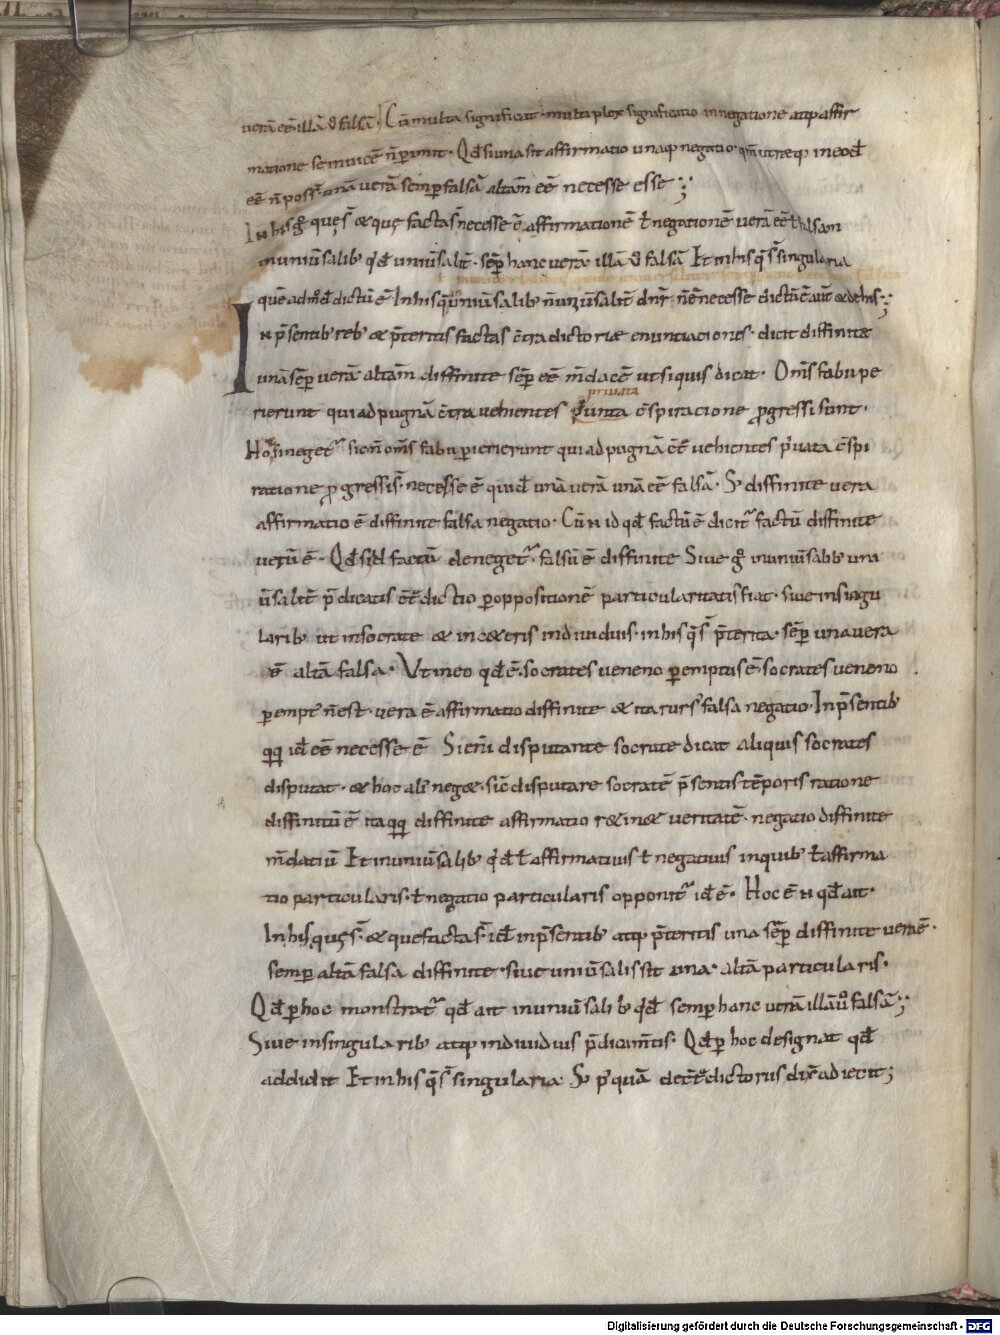 verā eē illā ů falsā. Cū multa significat multiplex significatio in negatione atq; affir
matione se invicē n̄ perimit. Qd̄ si una sit affirmatio unaq; negatio qm̄ utræq; in eod̄
eē n̄ poss̄ unā verā semp falsā altam̄ eē necesse esse :,
In his g̊ quę s̄ & quę facta s̄ necesse ē affirmationē ł negationē verā eē ł falsam
in univ̄salib; qd̄ē univ̄salit̄ sēp hanc verā illā ů falsā Et in his q̄ s̄ singularia
quēadmod̄ dictū ē In his q̄ in univ̄salib; n̄ univ̄salit̄ dnr̄ n̄ ē necesse dictū ē aūt & de his :,
In p̄sentib; reb; & p̄teritis factas c̄tradictoriæ enuntiaciones dicit diffinite
unā sēp verā altam̄ diffinite sēp eē m̄dacē ut si quis dicat Oms̄ fabii pe
privata
rierunt qui ad pugnā c̄tra vehientes iunta c̄spiracione progressi sunt.
Hoc si neget̄ sic n̄ oms̄ fabii perierunt qui ad pugnā c̄t̄ vehientes p̄vata c̄spi
ratione progressi s̄ necesse ē quid̄ unā verā unā eē falsā. S; diffinite vera
affirmatio ē diffinite falsa negatio. Cū n̄ id qd̄ factū ē dicit̄ factū diffinite
verū ē. Qd̄ si id factū deneget̄ falsū ē diffinite Sive g̊ in univ̄salib; uni
v̄salit̄ p̄dicatis c̄t̄dictio p oppositionē particularitatis fiat sive in singu
larib; ut in socrate & in c&eris individuis in his q̄ s̄ p̄terita sēp una vera
ē altā falsa. Ut in eo qd̄ ē socrates veneno pemptus ē socrates veneno
pempt; n̄ est vera ē affirmatio diffinite & ita rurs; falsa negatio In p̄sentib;
qq; id̄ eē necesse ē Si eni disputante socrate dicat aliquis socrates
disputat & hoc ali; neg& sic̄ disputare socratē p̄sentis tēporis ratione
diffinitū ē itaqq; diffinite affirmatio r&in& veritatē negatio diffinite
m̄daciū Et in univ̄salib; qd̄ē ł affirmativis ł negativis in quib; ł affirma
tio particularis ł negatio particularis opponit̄ id̄ ē. Hoc ē n̄ qd̄ ait
In his quę s̄ & que facta s̄ id̄ in p̄sentib; atq; p̄teritis una sēp diffinite vera ē
semp altā falsa diffinite sive univ̄salis sit una altā particularis.
Qd̄ p hoc monstrat̄ qd̄ ait in univ̄salib; qd̄ē semp hanc verā illā ů falsā :,
Sive in singularib; atq; individuis p̄dicam̄tis Qd̄ p hoc designat qd̄
addidit Et in his q̄ s̄ singularia S; p̄quā de c̄t̄dictoriis dix̄ adiecit ;
Digitalisierung gefördert durch die Deutsche Forschungsgemeinschaft - DFG